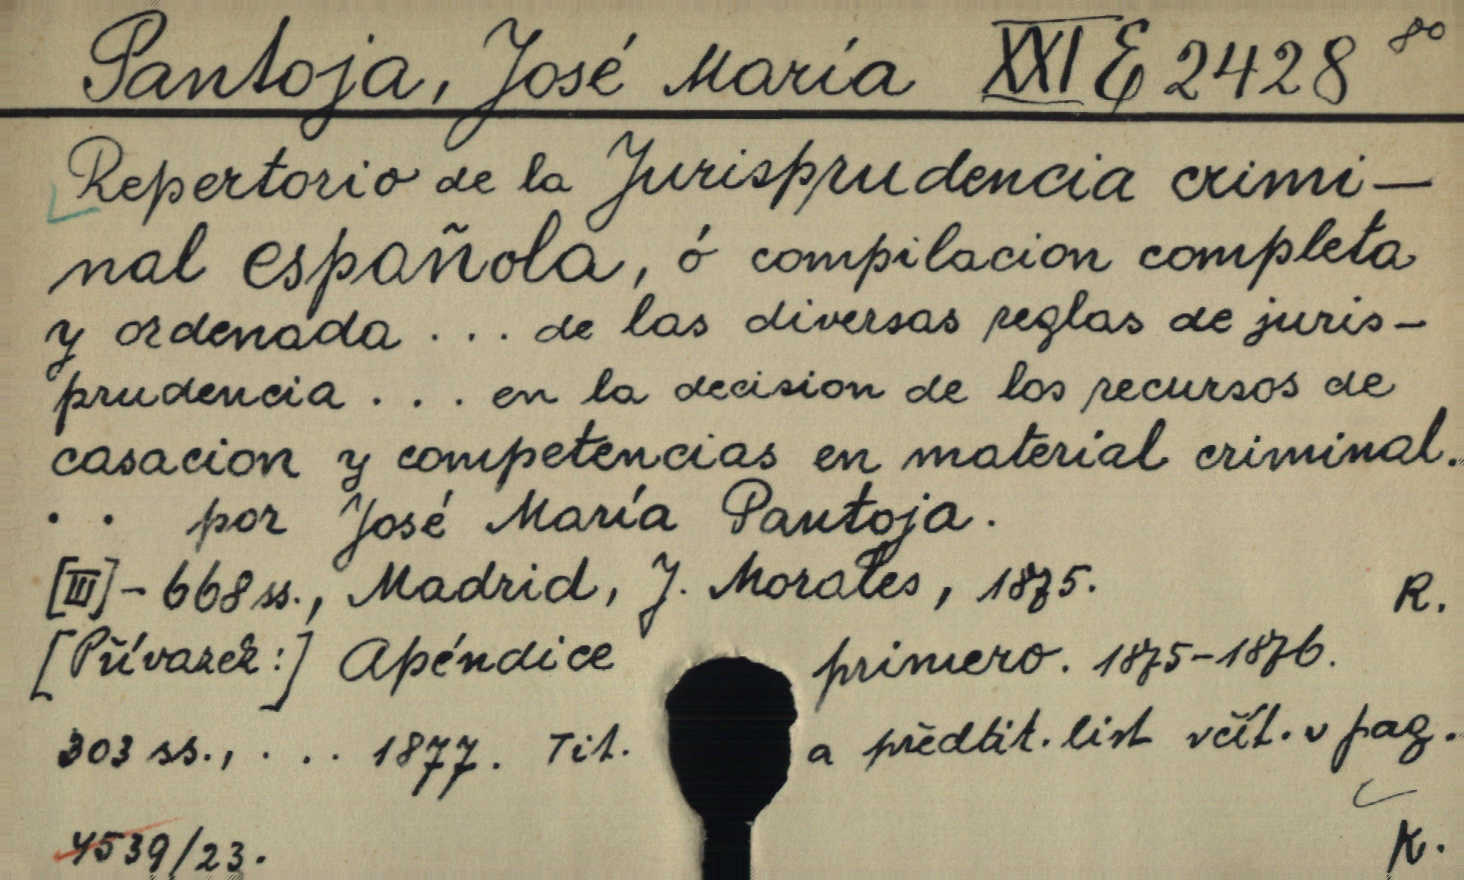 Pantoja, José María XXI E 2428 8o
Repertorio de la Jurisprudencia crimi-
nal española, ó compilacion completa
y ordenada ... de las diversas reglas de juris-
prudencia ... en la decision de los recursos de
casacion y competencias en material criminal.
. . por José María Pantoja.
[III]-668 ss., Madrid, J. Morales, 1875. R.
[Přívazek:] Apéndice primero. 1875-1876.
303 ss., ... 1877. Tit. a předtit. list včít. v pag.
4539/23. K.